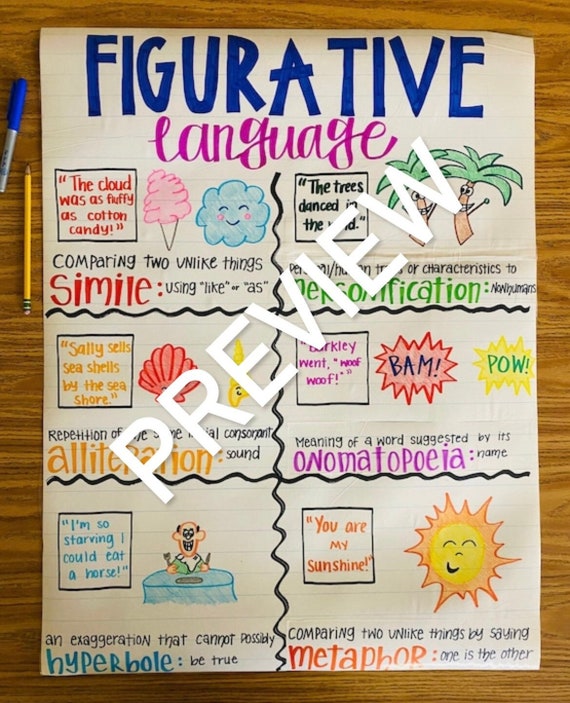 FIGURATIVE
language
"The cloud
was as fluffy
as cotton
candy!"
Comparing two unlike things
simile: using "like" or "as"
"The trees
danced in
the wind."
human or characteristics to
personification: Nonhumans
"Sally sells
sea shells
by the sea
shore."
Repetition of the same initial consonant
alliteration: sound
"Barkley
went, "woof
woof!"
BAM!
POW!
Meaning of a word suggested by its
onomatopoeia: name
"I'm so
starving I
could eat
a horse!"
an exaggeration that cannot possibly
hyperbole: be true
"You are
my
Sunshine!"
Comparing two unlike things by saying
metaphor: one is the other
PREVIEW